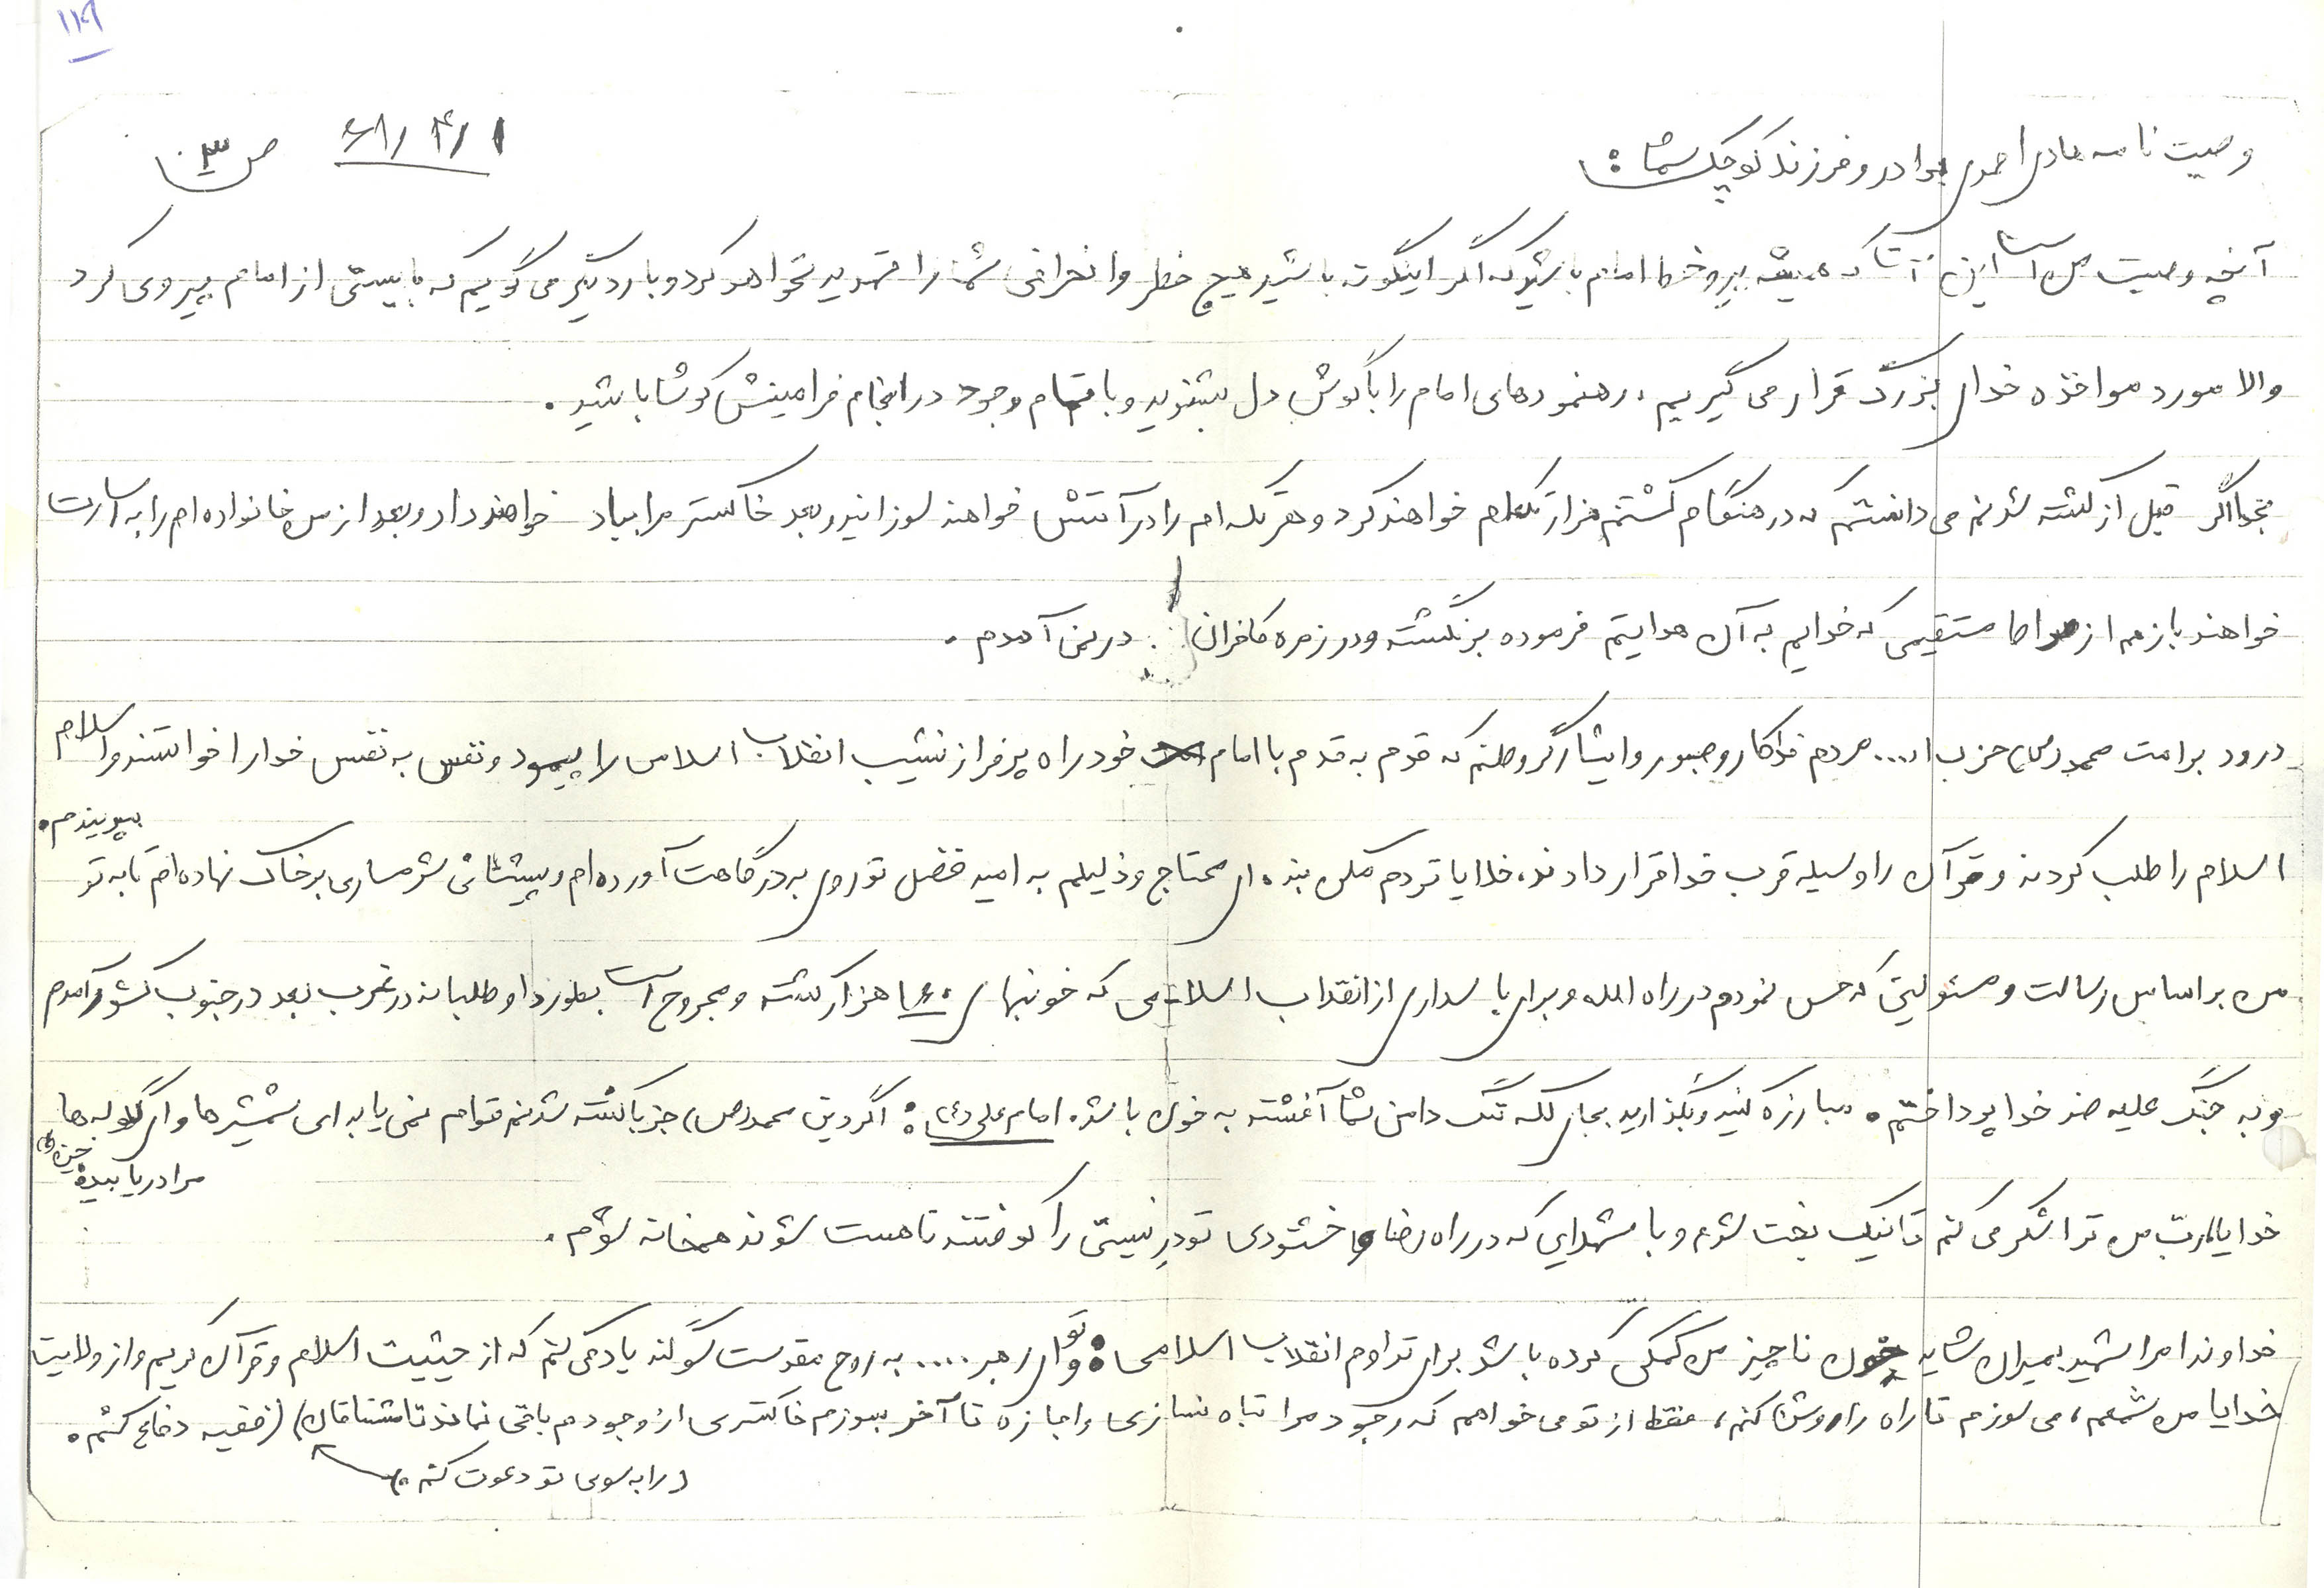 ۱۱۹
۶۱/۴/۱ ص ۳
وصیت نامه هادی احمدی برادر و فرزند کوچک شما:
آنچه وصیت من است این است که همیشه پیرو خط امام باشید که اگر اینگونه باشید هیچ خطر و انحرافی شما را تهدید نخواهد کرد و بار دیگر می گویم که بایستی از امام پیروی کرد
والا مورد مواخذه خدای بزرگ قرار می گیریم. رهنمودهای امام را با گوش دل بشنوید و با تمام وجود در انجام فرامینش کوشا باشید.
بخدا اگر قبل از کشته شدنم می دانستم که در هنگام کشتنم هزار تکه ام خواهند کرد و هر تکه ام را در آتش خواهند سوزانید و بعد خاکستر مرا بباد خواهند داد و بعد از من خانواده ام را به اسارت
خواهند باز هم از صراط مستقیمی که خدایم به آن هدایتم فرموده برنگشته و در زمره کافران در نمی آمدم.
درود بر امت محمد (ص) حزب ا... مردم فداکار و صبور و ایثارگر وطنم که قدم به قدم با امام خود راه پر فراز نشیب انقلاب اسلامی را پیمود و نفس به نفس خدا را خواستند و اسلام
اسلام را طلب کردند و قرآن را وسیله قرب خدا قرار دادند، خدایا تردم مکن بنده ای محتاج و ذلیلم به امید فضل تو روی به درگاهت آورده ام و پیشانی شرمساری بر خاک نهاده ام تا به تو
بپیوندم.
من بر اساس رسالت و مسئولیتی که حس نمودم در راه الله و برای پاسداری از انقلاب اسلامی که خونبهای ۱۶۰ هزار کشته و مجروح است بطور داوطلبانه در غرب بعد در جنوب کشور آمدم
و به جنگ علیه ضد خدا پرداختم. مبارزه کنید و بگذارید بجای لکه ننگ دامن شما آغشته به خون باشد. امام علی (ع): اگر دین محمد (ص) جز با کشته شدنم قوام نمی یابد ای شمشیرها و ای گلوله ها
مرا دریابید.
خدایا، رب من ترا شکر می کنم تا نیک بخت شوم و با شهدایی که در راه رضا و خشنودی تو درِ نیستی را کوفتند تا هست شوند همخانه شوم.
خداوندا مرا شهید بمیران شاید خون ناچیز من کمکی کرده باشد برای تداوم انقلاب اسلامی: و تو ای رهبر.... به روح مقدست سوگند یاد می کنم که از حیثیت اسلام و قرآن کریم و از ولایت
فقیه دفاع کنم.
خدایا من شمعم، می سوزم تا راه را روشن کنم، فقط از تو می خواهم که وجود مرا تباه نسازی و اجازه تا آخر بسوزم خاکستری از وجودم باقی نماند تا مشتاقان
را به سوی تو دعوت کنم.